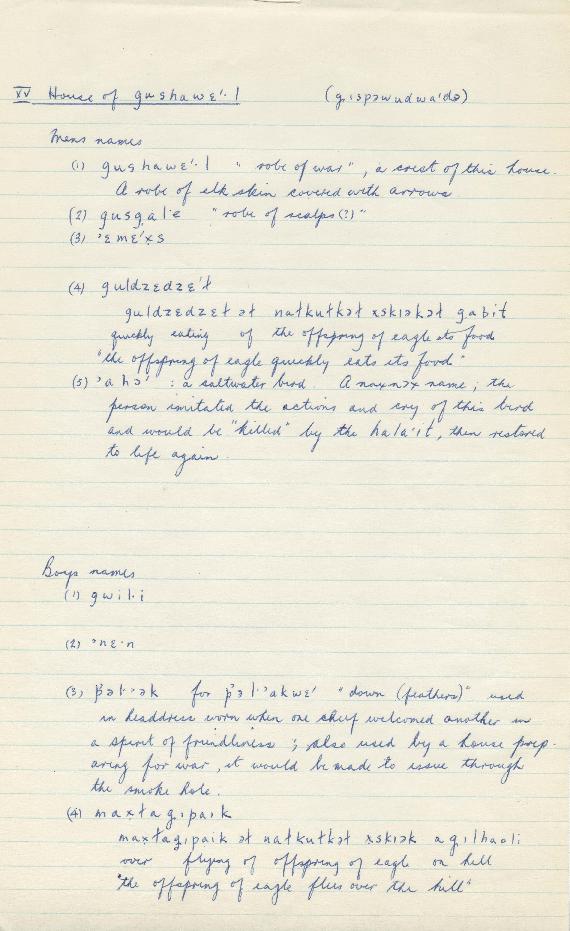 XV House of gushawɛ'·l (g̣ɪspəwudwa'də)
Mens names
(1) gushawɛ'·l "robe of war", a crest of this house.
A robe of elk skin covered with arrows
(2) gusg̣al·e "robe of scalps(?)"
(3) 'ɛmɛ'x̣s
(4) guldzɛdzɛ'ł
guldzɛdzɛł ət nałkutkət xskɪəkət gabit
quickly eating of the offspring of eagle its food
"the offspring of eagle quickly eats its food"
(5) 'ahə' : a saltwater bird. A naxnəx name; the
person imitated the actions and cry of this bird
and would be "killed" by the hala'it, then restored
to life again.
Boys names
(1) gwil·i
(2) 'nɛ·n
(3) p̓əl·'ək for p̓əl·'akwɛ' "down (feathers)" used
in headdress worn when one chief welcomed another in
a spirit of friendliness ; also used by a house prep-
aring for war, it would be made to issue through
the smoke hole.
(4) maxłag̣ɪpaɪk
maxłag̣ɪpaik ət nałkutkət xskɪək ag̣ɪlhaoli
over flying of offspring of eagle on hill
"the offspring of eagle flies over the hill"